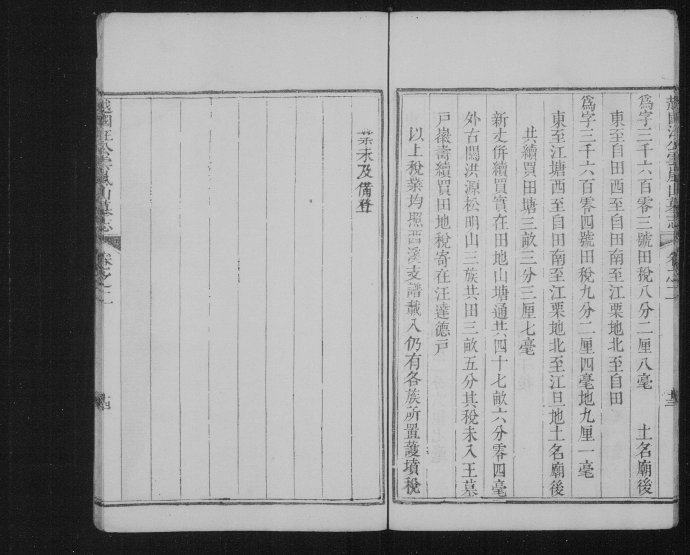 爲字三千六百零三號田稅八分二厘八毫 土名廟後
東至自田西至自田南至江栗地北至自田
爲字三千六百零四號田稅九分二厘四毫地九厘一毫
東至江塘西至自田南至江栗地北至江旦地土名廟後
共續買田塘三畝三分三厘七毫
新丈併續買實在田地山塘通共四十七畝六分零四毫
外右闊洪源松明山三族共田三畝五分其稅未入王墓
戶嶽壽續買田地稅寄在汪達德戶
以上稅業均照西溪支譜載入仍有各族所置護墳稅
越國汪公雲嵐山墓志 卷之二
業未及備登
越國汪公雲嵐山墓志 卷之二